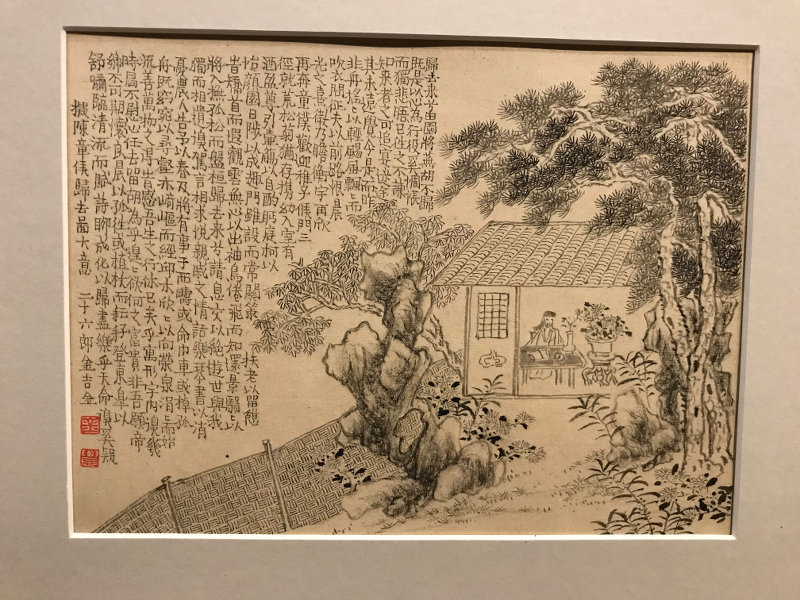 歸去來兮田園將蕪胡不歸
既是以心為行役奚惆悵
而獨悲悟已往之不諫
知來者之可追實迷途
其未遠覺今是而昨
非舟搖〻以輕颺風飄〻而
吹衣問征夫以前路恨晨
光之熹微乃瞻衡宇再欣
再奔童僕歡迎稚子候門三
徑就荒松菊猶存攜幼入室有
酒盈尊引壺觴以自酌眄庭柯以
怡顏園日涉以成趣門雖設而常關策扶老以留憩
矯首而遐觀雲無心以出岫鳥倦飛而知還景翳〻以
將入撫孤松而盤桓歸去來兮請息交以絕遊世與我
獨而相遺復駕言相求悅親戚之情話樂琴書以消
憂農人告予以春及將有事于西疇或命巾車或棹孤
舟既窈窕以尋壑亦崎嶇而經邱木欣〻以向榮泉涓〻而始
流善萬物之得時感吾生之行休已矣乎寓形宇內復幾
時曷不委心任去留胡為乎遑〻欲何之富貴非吾願帝
鄉不可期懷良辰以孤往或植杖而耘耔登東皋以
舒嘯臨清流而賦詩聊乘化以歸盡樂乎天命復奚疑
擬陳章侯歸去圖大意 二十六郎金吉金